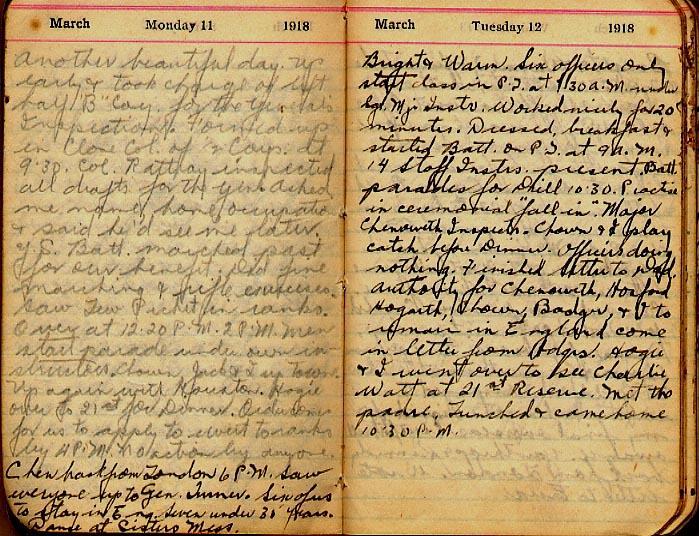 March Monday 11 1918
Another beautiful day. Up
early & took charge of left
half "B" Coy. for the Generals
Inspection. Formed up
in Close Col. of Coys. at
9.30. Col. Rattray inspected
all drafts for the Gen. Asked
me name, home, occupation
& said he'd see me later.
Batt. marched past
for our benefit. Did fine
marching & rifle exercises.
Saw Lew in ranks.
Over at 12.20 P.M. 2 P.M. men
start parade under own in-
structors. Chown, & I up town.
Up again with Houston. Hogie
over to 21st for Dinner. Orders come
for us to apply to revert to ranks
by 4 P.M. No action by anyone.
Chen back from London 6 P.M. Saw
everyone up to Gen. Turner. Six of us
to stay in Eng. Seven under 30 years.
Dance at Sisters Mess.
March Tuesday 12 1918
Bright & Warm. Six officers only
staff class in P.T. at 7.30 A.M. under
Sgt. Mj. Instr. Worked nicely for 20
minutes. Dressed, breakfast &
started Batt. on P.T. at 9 A.M.
14 Staff Instrs. present. Batt
parades for Drill 10:30. Practise
in ceremonial "fall in". Major
Chenowith Inspects. Chown & I play
catch before Dinner. Officers doing
nothing. Finished letter to
authority for Chenowith, Hosford
Hogarth, Chown, Badger, & I to
remain in England come
in letter from Hdqrs. Hogie
& I went over to see Charlie
Watt at 21st Reserve. Met the
padre, Lunched & came home
10:30 P.M.